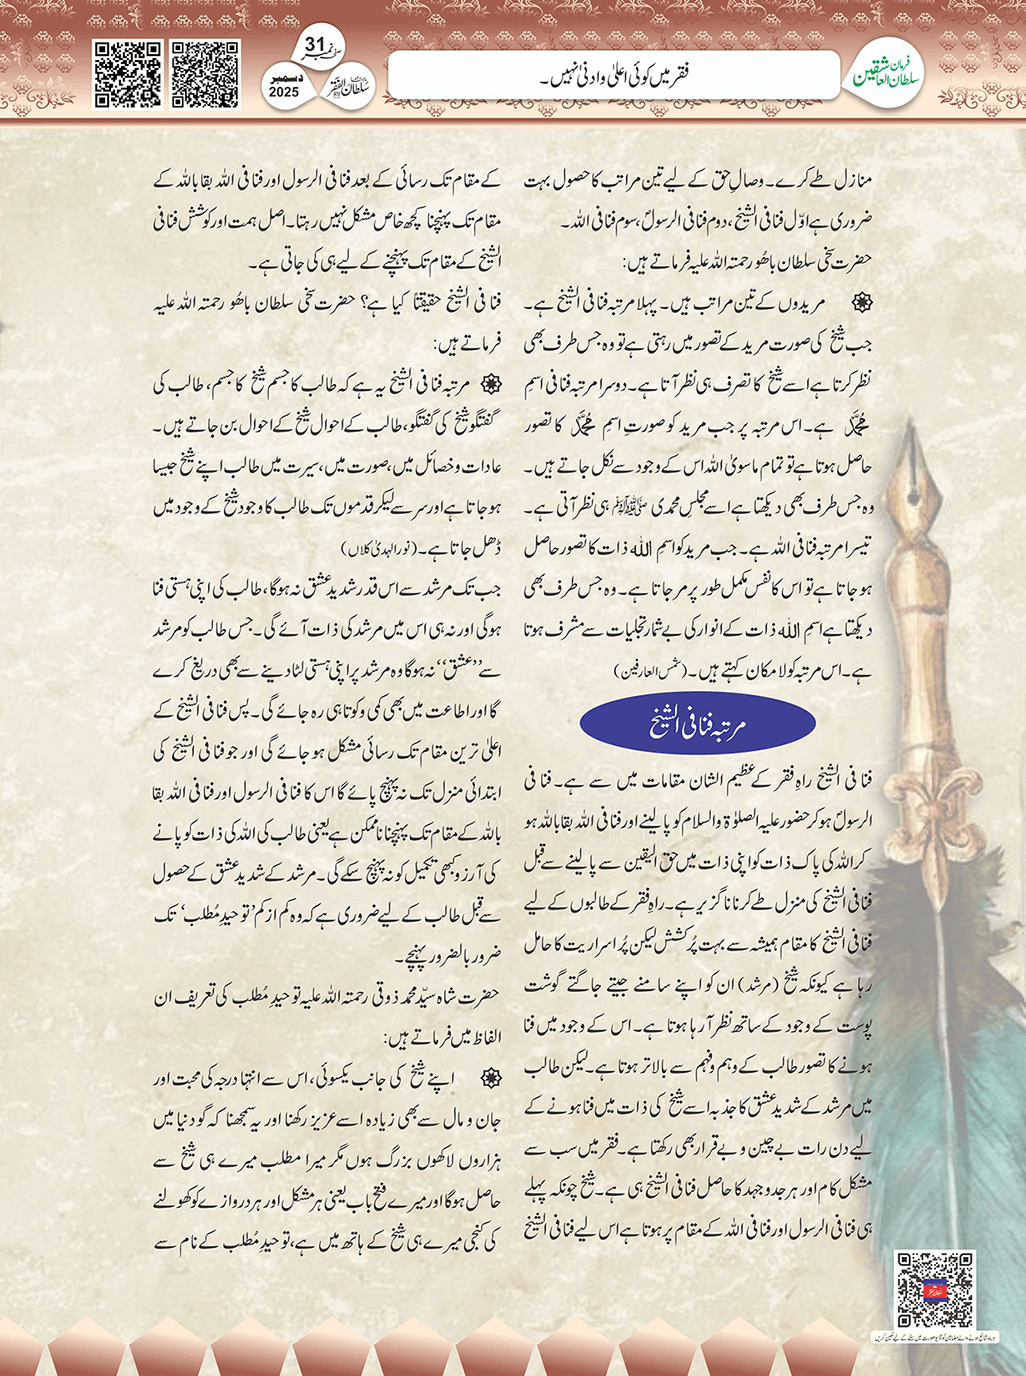 فرمان سلطان العاشقین
فقر میں کوئی اعلیٰ و ادنیٰ نہیں۔
صفحہ نمبر 31
ماہنامہ سلطان الفقر لاہور
دسمبر
2025
منازل طے کرے۔ وصالِ حق کے لیے تین مراتب کا حصول بہت
ضروری ہے اوّل فنا فی الشیخ، دوم فنا فی الرسولؐ، سوم فنا فی اللہ۔
حضرت سخی سلطان باھُو رحمتہ اللہ علیہ فرماتے ہیں:
مریدوں کے تین مراتب ہیں۔ پہلا مرتبہ فنا فی الشیخ ہے۔
جب شیخ کی صورت مرید کے تصور میں رہتی ہے تو وہ جس طرف بھی
نظر کرتا ہے اسے شیخ کا تصرف ہی نظر آتا ہے۔ دوسرا مرتبہ فنا فی اسمِ
محمد ہے۔ اس مرتبہ پر جب مرید کو صورتِ اسمِ محمد کا تصور
حاصل ہوتا ہے تو تمام ماسویٰ اللہ اس کے وجود سے نکل جاتے ہیں۔
وہ جس طرف بھی دیکھتا ہے اسے مجلسِ محمدی ﷺ ہی نظر آتی ہے۔
تیسرا مرتبہ فنا فی اللہ ہے۔ جب مرید کو اسمِ اللہ ذات کا تصور حاصل
ہو جاتا ہے تو اس کا نفس مکمل طور پر مر جاتا ہے۔ وہ جس طرف بھی
دیکھتا ہے اسمِ اللہ ذات کے انوار کی بے شمار تجلیات سے مشرف ہوتا
ہے۔ اس مرتبہ کو لامکان کہتے ہیں۔ (شمس العارفین)
مرتبہ فنا فی الشیخ
فنا فی الشیخ راہِ فقر کے عظیم الشان مقامات میں سے ہے۔ فنا فی
الرسولؐ ہو کر حضور علیہ الصلوٰۃ والسلام کو پا لینے اور فنا فی اللہ بقا باللہ ہو
کر اللہ کی پاک ذات کو اپنی ذات میں حق الیقین سے پا لینے سے قبل
فنا فی الشیخ کی منزل طے کرنا ناگزیر ہے۔ راہِ فقر کے طالبوں کے لیے
فنا فی الشیخ کا مقام ہمیشہ سے بہت پُرکشش لیکن پُر اسراریت کا حامل
رہا ہے کیونکہ شیخ (مرشد) ان کو اپنے سامنے جیتے جاگتے گوشت
پوست کے وجود کے ساتھ نظر آ رہا ہوتا ہے۔ اس کے وجود میں فنا
ہونے کا تصور طالب کے وہم و فہم سے بالاتر ہوتا ہے۔ لیکن طالب
میں مرشد کے شدید عشق کا جذبہ اسے شیخ کی ذات میں فنا ہونے کے
لیے دن رات بے چین و بے قرار بھی رکھتا ہے۔ فقر میں سب سے
مشکل کام اور ہر جدوجہد کا حاصل فنا فی الشیخ ہی ہے۔ شیخ چونکہ پہلے
ہی فنا فی الرسول اور فنا فی اللہ کے مقام پر ہوتا ہے اس لیے فنا فی الشیخ
کے مقام تک رسائی کے بعد فنا فی الرسول اور فنا فی اللہ بقا باللہ کے
مقام تک پہنچنا کچھ خاص مشکل نہیں رہتا۔ اصل ہمت اور کوشش فنا فی
الشیخ کے مقام تک پہنچنے کے لیے ہی کی جاتی ہے۔
فنا فی الشیخ حقیقتاً کیا ہے؟ حضرت سخی سلطان باھُو رحمتہ اللہ علیہ
فرماتے ہیں:
مرتبہ فنا فی الشیخ یہ ہے کہ طالب کا جسم شیخ کا جسم، طالب کی
گفتگو شیخ کی گفتگو، طالب کے احوال شیخ کے احوال بن جاتے ہیں۔
عادات و خصائل میں، صورت میں، سیرت میں طالب اپنے شیخ جیسا
ہو جاتا ہے اور سر سے لیکر قدموں تک طالب کا وجود شیخ کے وجود میں
ڈھل جاتا ہے۔ (نور الہدیٰ کلاں)
جب تک مرشد سے اس قدر شدید عشق نہ ہوگا، طالب کی اپنی ہستی فنا
ہوگی اور نہ ہی اس میں مرشد کی ذات آئے گی۔ جس طالب کو مرشد
سے ’’عشق‘‘ نہ ہوگا وہ مرشد پر اپنی ہستی لٹا دینے سے بھی دریغ کرے
گا اور اطاعت میں بھی کمی و کوتاہی رہ جائے گی۔ پس فنا فی الشیخ کے
اعلیٰ ترین مقام تک رسائی مشکل ہو جائے گی اور جو فنا فی الشیخ کی
ابتدائی منزل تک نہ پہنچ پائے گا اس کا فنا فی الرسول اور فنا فی اللہ بقا
باللہ کے مقام تک پہنچنا ناممکن ہے یعنی طالب کی اللہ کی ذات کو پانے
کی آرزو کبھی تکمیل کو نہ پہنچ سکے گی۔ مرشد کے شدید عشق کے حصول
سے قبل طالب کے لیے ضروری ہے کہ وہ کم از کم ’توحیدِ مُطلب‘ تک
ضرور بالضرور پہنچے۔
حضرت شاہ سیّد محمد ذوقی رحمتہ اللہ علیہ توحیدِ مُطلب کی تعریف ان
الفاظ میں فرماتے ہیں:
اپنے شیخ کی جانب یکسوئی، اس سے انتہا درجہ کی محبت اور
جان و مال سے بھی زیادہ اسے عزیز رکھنا اور یہ سمجھنا کہ گو دنیا میں
ہزاروں لاکھوں بزرگ ہوں مگر میرا مطلب میرے ہی شیخ سے
حاصل ہوگا اور میرے فتح باب یعنی ہر مشکل اور ہر دروازے کو کھولنے
کی کنجی میرے ہی شیخ کے ہاتھ میں ہے، توحیدِ مُطلب کے نام سے